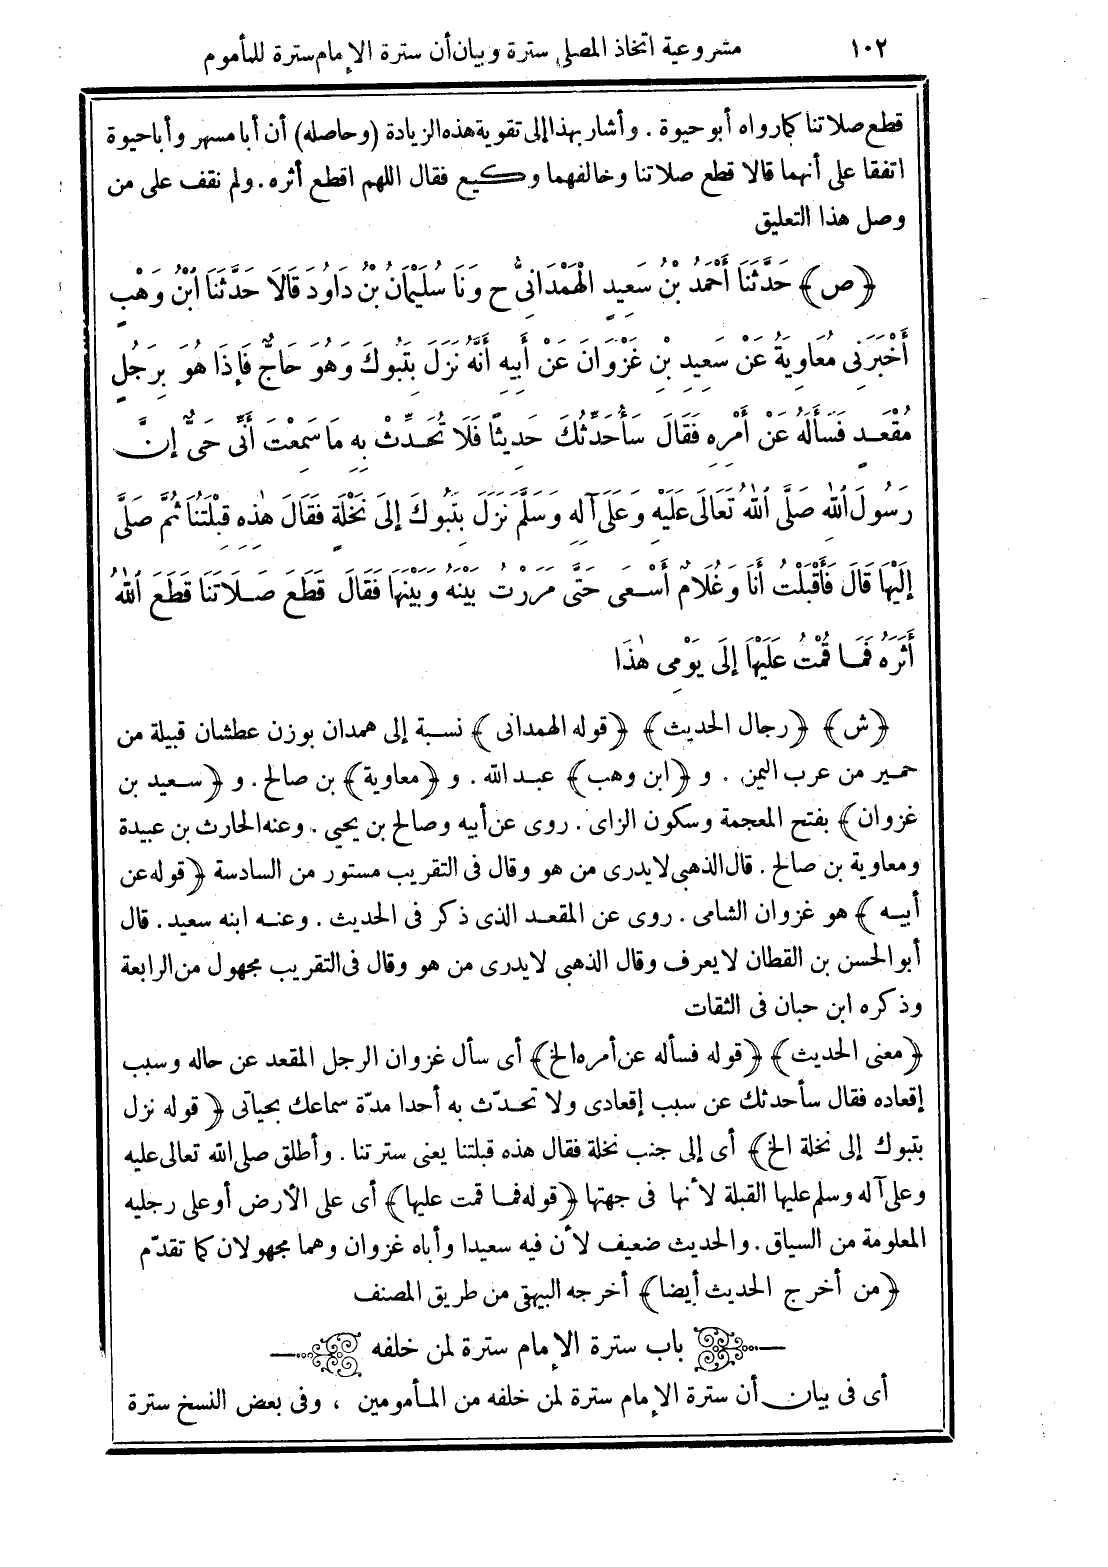 ١٠٢ مشروعية اتخاذ المصلى سترة وبيان أن سترة الإمام سترة للمأموم
قطع صلاتنا كما رواه أبو حيوة . وأشار بهذا إلى تقوية هذه الزيادة (وحاصله) أن أبا مسهر وأبا حيوة
اتفقا على أنهما قالا قطع صلاتنا وخالفهما وكيع فقال اللهم اقطع أثره . ولم نقف على من
وصل هذا التعليق
﴿ص﴾ حَدَّثَنَا أَحْمَدُ بْنُ سَعِيدٍ الْهَمْدَانِىُّ ح وَنَا سُلَيْمَانُ بْنُ دَاوُدَ قَالَا حَدَّثَنَا ابْنُ وَهْبٍ
أَخْبَرَنِى مُعَاوِيَةُ عَنْ سَعِيدِ بْنِ غَزْوَانَ عَنْ أَبِيهِ أَنَّهُ نَزَلَ بِتَبُوكَ وَهُوَ حَاجٌّ فَإِذَا هُوَ بِرَجُلٍ
مُقْعَدٍ فَسَأَلَهُ عَنْ أَمْرِهِ فَقَالَ سَأُحَدِّثُكَ حَدِيثًا فَلَا تُحَدِّثْ بِهِ مَا سَمِعْتَ أَنِّى حَىٌّ إِنَّ
رَسُولَ اللهِ صَلَّى اللهُ تَعَالَى عَلَيْهِ وَعَلَى آلِهِ وَسَلَّمَ نَزَلَ بِتَبُوكَ إِلَى نَخْلَةٍ فَقَالَ هٰذِهِ قِبْلَتُنَا ثُمَّ صَلَّى
إِلَيْهَا قَالَ فَأَقْبَلْتُ أَنَا وَغُلَامٌ أَسْعَى حَتَّى مَرَرْتُ بَيْنَهُ وَبَيْنَهَا فَقَالَ قَطَعَ صَلَاتَنَا قَطَعَ اللهُ
أَثَرَهُ فَمَا قُمْتُ عَلَيْهَا إِلَى يَوْمِى هٰذَا
﴿ش﴾ ﴿رجال الحديث﴾ ﴿قوله الهمدانى﴾ نسبة إلى همدان بوزن عطشان قبيلة من
حمير من عرب اليمن . و ﴿ابن وهب﴾ عبد الله . و ﴿معاوية﴾ بن صالح . و ﴿سعيد بن
غزوان﴾ بفتح المعجمة وسكون الزاى . روى عن أبيه وصالح بن يحيى . وعنه الحارث بن عبيدة
ومعاوية بن صالح . قال الذهبى لا يدرى من هو وقال فى التقريب مستور من السادسة ﴿قوله عن
أبيه﴾ هو غزوان الشامى . روى عن المقعد الذى ذكر فى الحديث . وعنه ابنه سعيد . قال
أبو الحسن بن القطان لا يعرف وقال الذهبى لا يدرى من هو وقال فى التقريب مجهول من الرابعة
وذكره ابن حبان فى الثقات
﴿معنى الحديث﴾ ﴿قوله فسأله عن أمره الخ﴾ أى سأل غزوان الرجل المقعد عن حاله وسبب
إقعاده فقال سأحدثك عن سبب إقعادى ولا تحدّث به أحدا مدّة سماعك بحياتى ﴿قوله نزل
بتبوك إلى نخلة الخ﴾ أى إلى جنب نخلة فقال هذه قبلتنا يعنى سترتنا . وأطلق صلى الله تعالى عليه
وعلى آله وسلم عليها القبلة لأنها فى جهتها ﴿قوله فما قمت عليها﴾ أى على الأرض أو على رجليه
المعلومة من السياق . والحديث ضعيف لأن فيه سعيدا وأباه غزوان وهما مجهولان كما تقدّم
﴿من أخرج الحديث أيضا﴾ أخرجه البيهقى من طريق المصنف
باب سترة الإمام سترة لمن خلفه
أى فى بيان أن سترة الإمام سترة لمن خلفه من المأمومين ، وفى بعض النسخ سترة